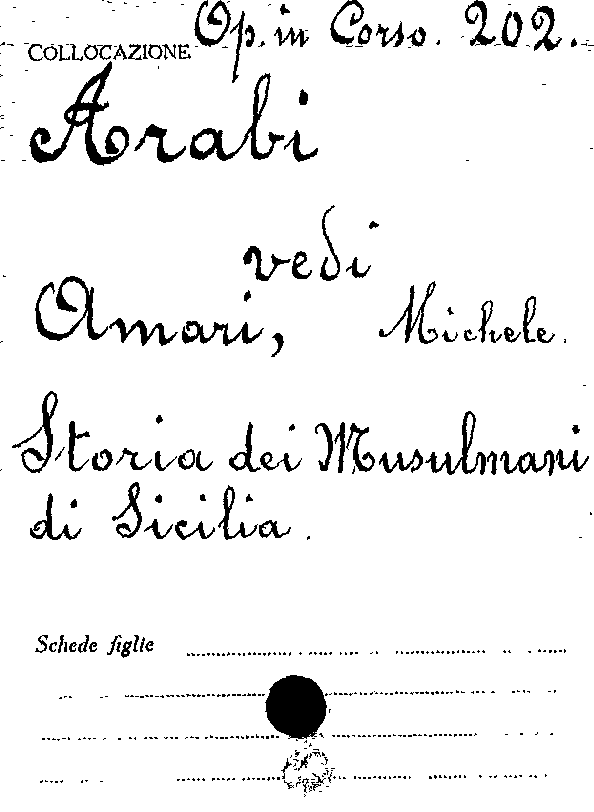 COLLOCAZIONE Op. in Corso. 202.
Arabi
vedi
Amari, Michele.
Storia dei Musulmani
di Sicilia.
Schede figlie